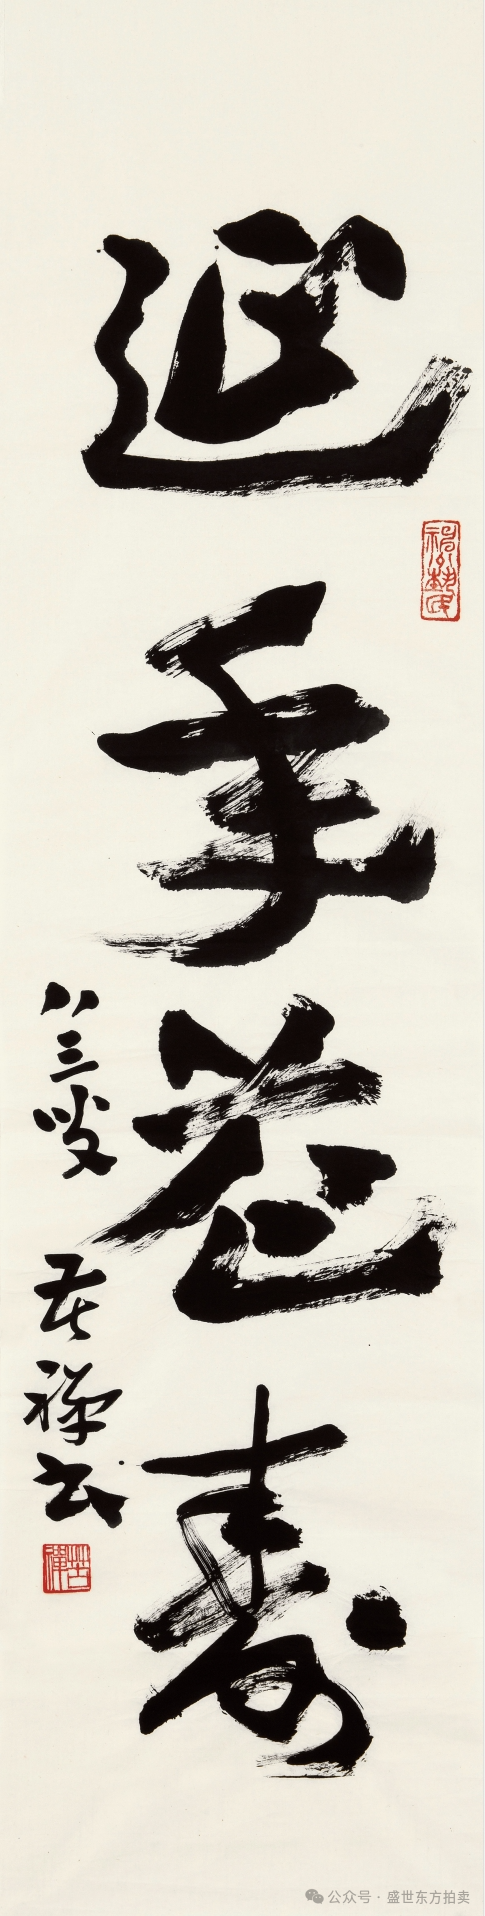 延年益寿
八三叟
苦禅书
苦禅
公众号·盛世东方拍卖